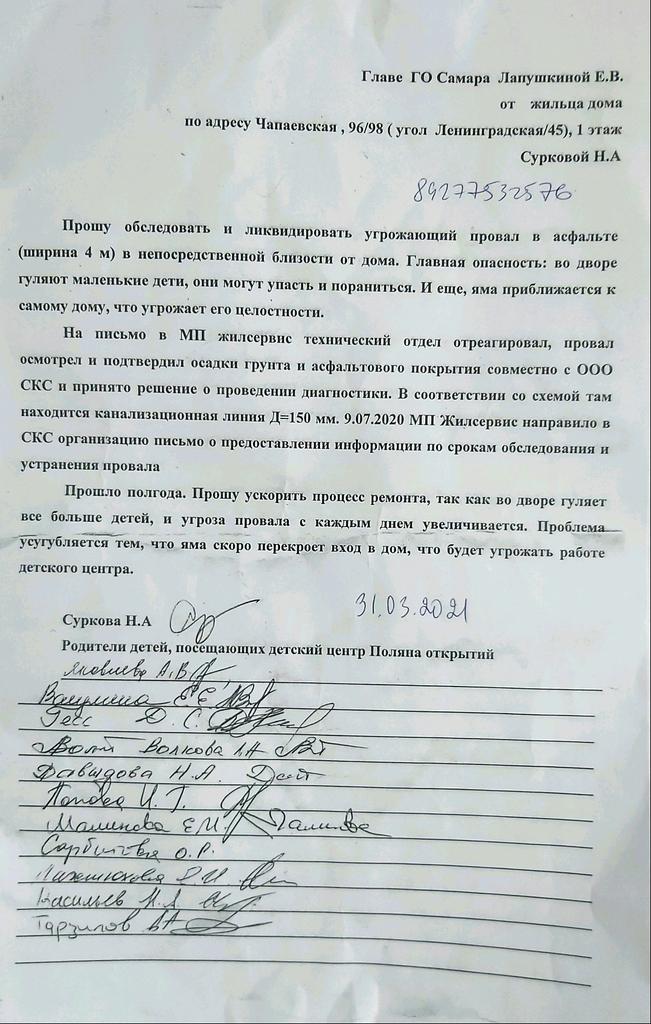 Главе ГО Самара Лапушкиной Е.В.
от жильца дома
по адресу Чапаевская , 96/98 ( угол Ленинградская/45), 1 этаж
Сурковой Н.А
89277532576
Прошу обследовать и ликвидировать угрожающий провал в асфальте
(ширина 4 м) в непосредственной близости от дома. Главная опасность: во дворе
гуляют маленькие дети, они могут упасть и пораниться. И еще, яма приближается к
самому дому, что угрожает его целостности.
На письмо в МП жилсервис технический отдел отреагировал, провал
осмотрел и подтвердил осадки грунта и асфальтового покрытия совместно с ООО
СКС и принято решение о проведении диагностики. В соответствии со схемой там
находится канализационная линия Д=150 мм. 9.07.2020 МП Жилсервис направило в
СКС организацию письмо о предоставлении информации по срокам обследования и
устранения провала
Прошло полгода. Прошу ускорить процесс ремонта, так как во дворе гуляет
все больше детей, и угроза провала с каждым днем увеличивается. Проблема
усугубляется тем, что яма скоро перекроет вход в дом, что будет угрожать работе
детского центра.
Суркова Н.А
31.03.2021
Родители детей, посещающих детский центр Поляна открытий
Яковлева А.В
Вакулина Е.Е.
Гесс Д. С.
Волкова
Давыдова Н.А.
Попова И. Г.
Малинова Е.И.
О.Р.
Васильев Н.А